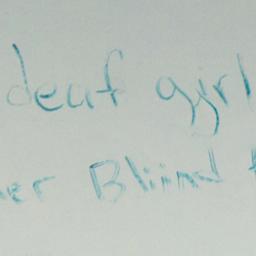 deaf girl
er Bliind